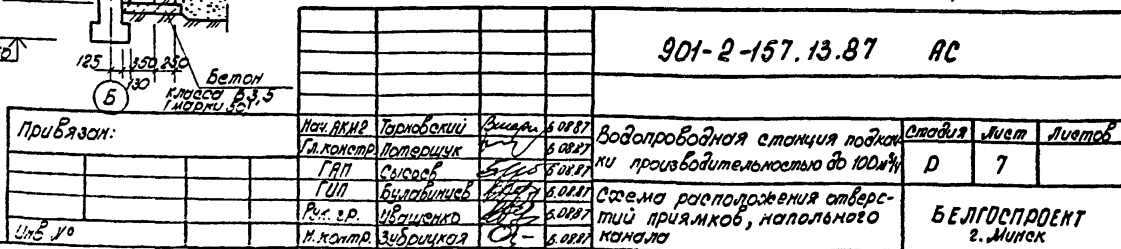 125 350 250
130
Б
Бетон
класса В3,5
(марки 50)
901-2-157.13.87 АС
Привязан:
Инв. №
Нач. АКМ2 Тарновский 6.0887
Гл. констр. Потерщук 6.0887
ГАП Сысоев 6.0887
ГИП Булавинцев 6.0887
Рук. гр. Иващенко 6.0887
Н. контр. Зубрицкая 6.0887
Водопроводная станция подкач-
ки производительностью до 100 м³/ч
Стадия Лист Листов
Р 7
Схема расположения отверс-
тий приямков, напольного
канала
БЕЛГОСПРОЕКТ
г. Минск